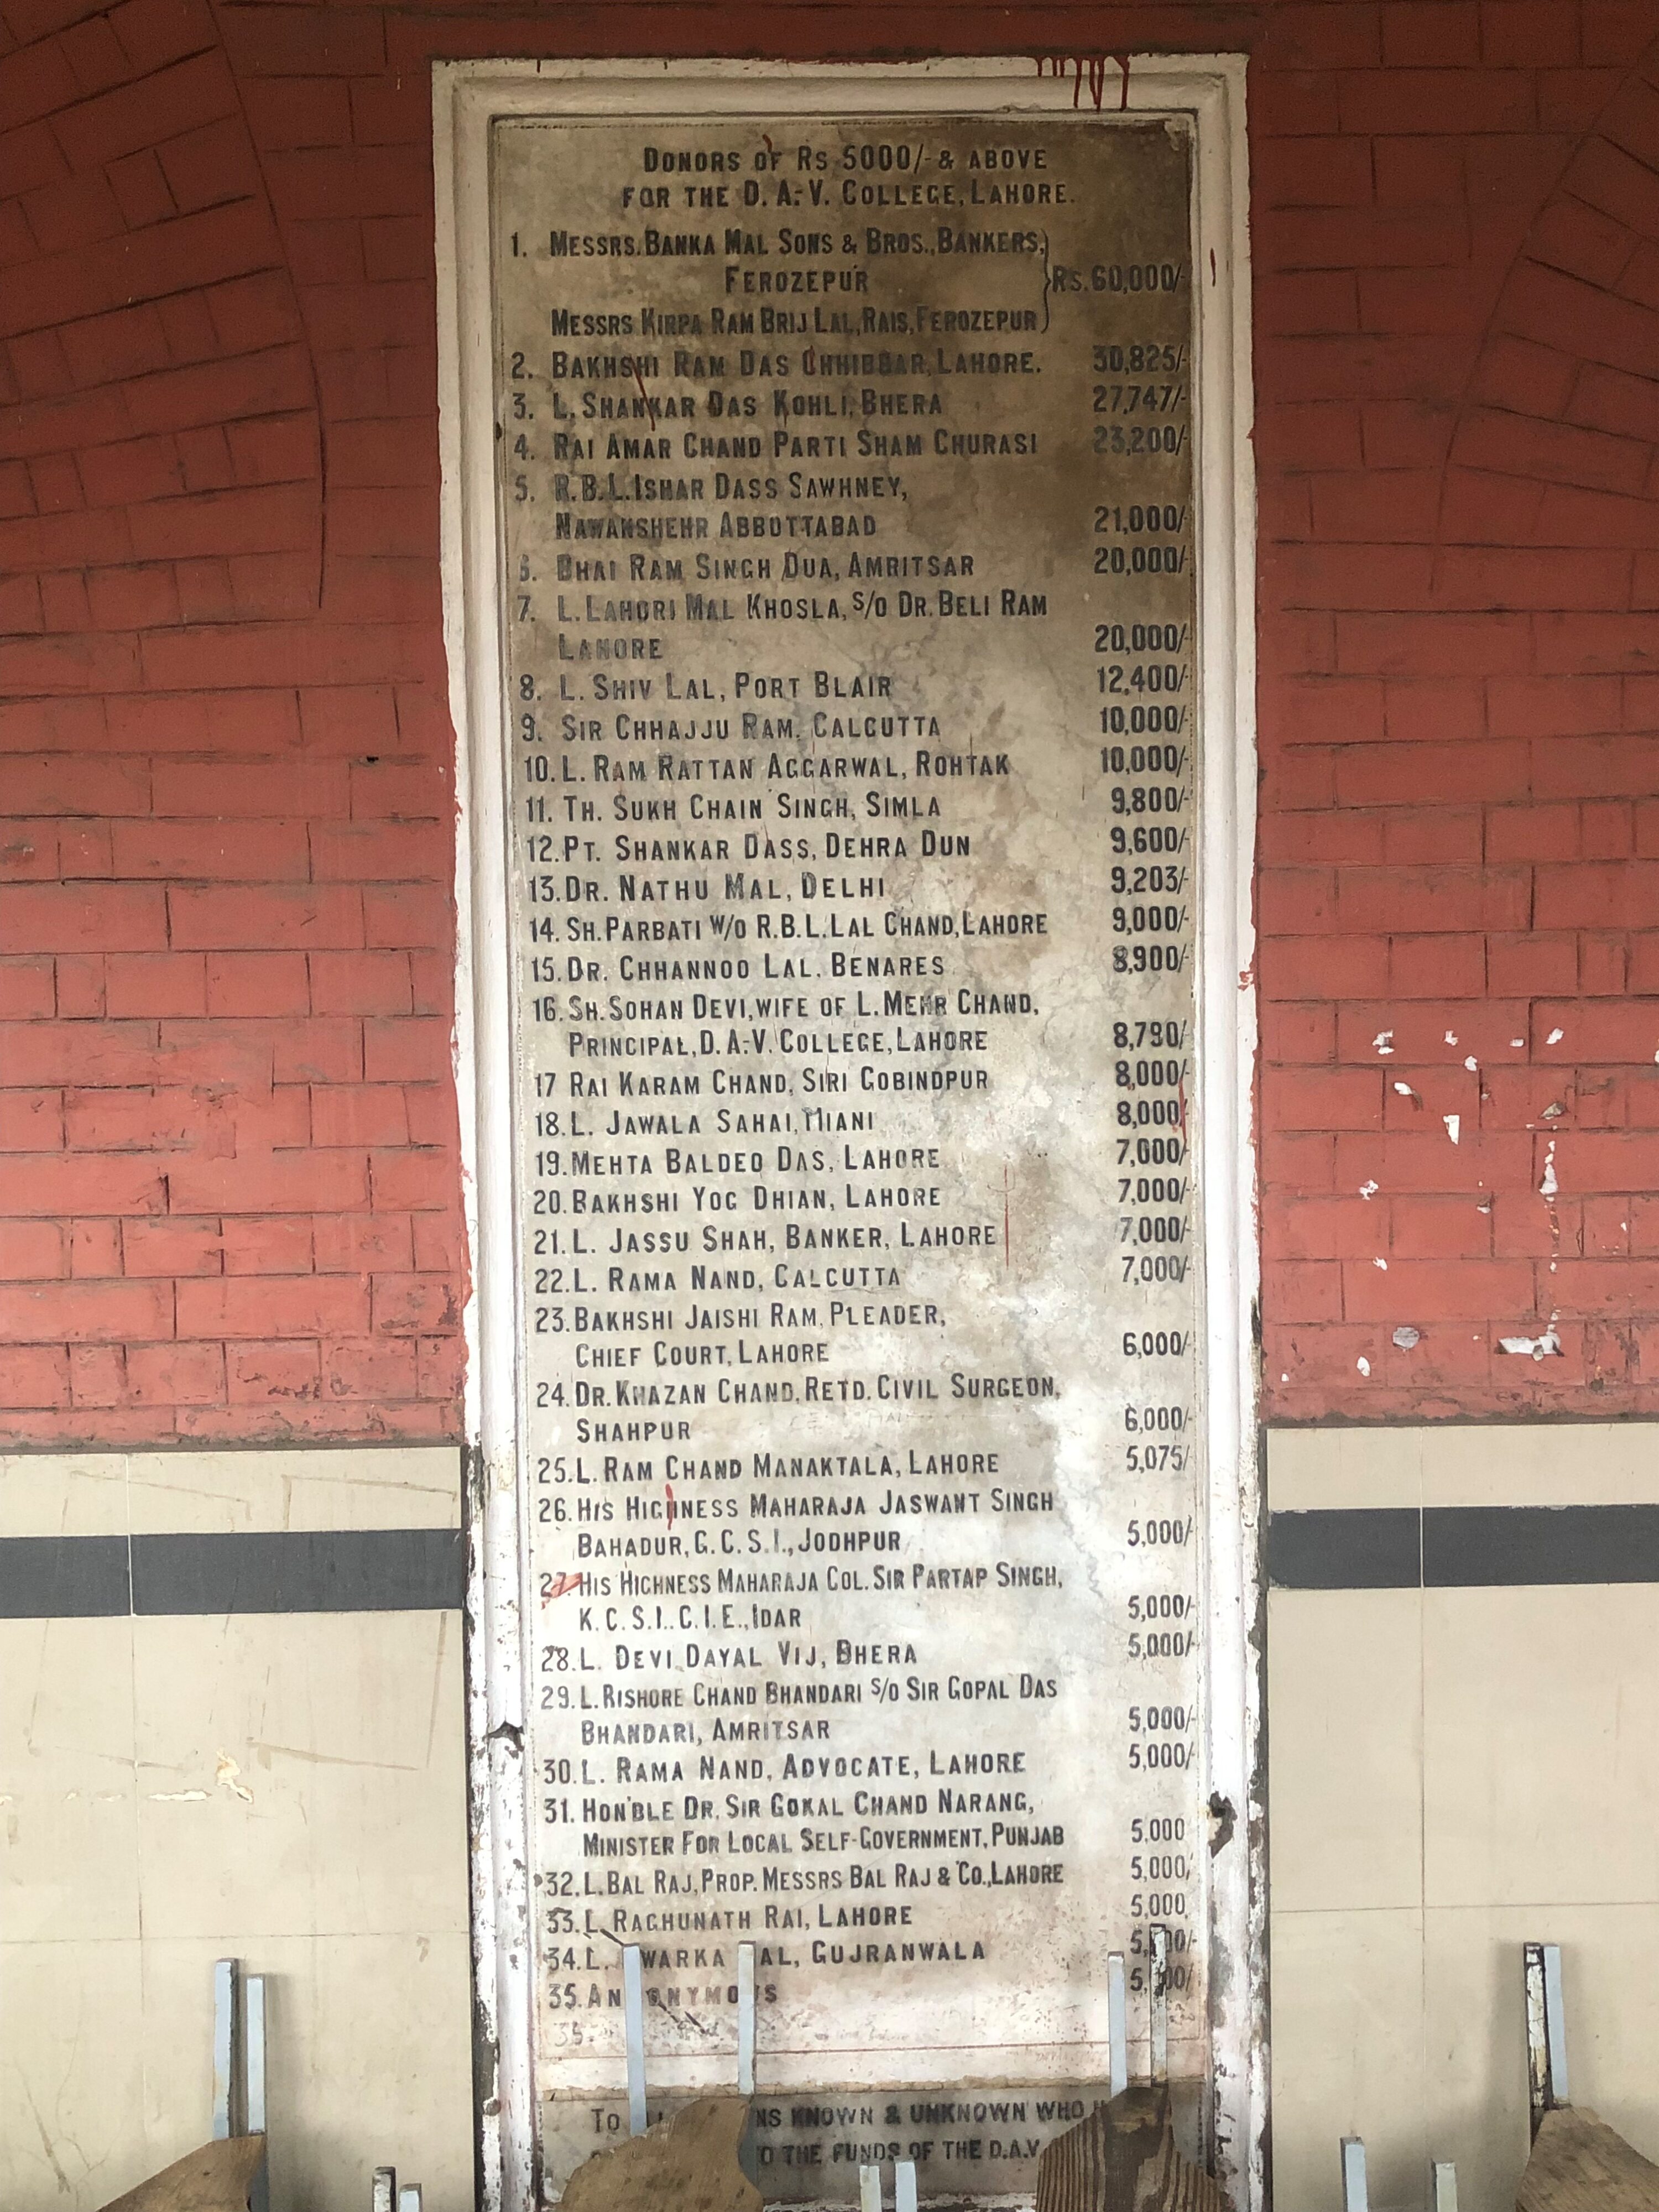 DONORS OF RS 5000/- & ABOVE
FOR THE D. A.-V. COLLEGE, LAHORE.
1. MESSRS. BANKA MAL SONS & BROS., BANKERS,
FEROZEPUR Rs. 60,000/-
MESSRS KIRPA RAM BRIJ LAL, RAIS, FEROZEPUR
2. BAKHSHI RAM DAS CHHIBBAR, LAHORE. 30,825/-
3. L. SHANKAR DAS KOHLI, BHERA 27,747/-
4. RAI AMAR CHAND PARTI SHAM CHURASI 23,200/-
5. R.B.L. ISHAR DASS SAWHNEY,
NAWANSHEHR ABBOTTABAD 21,000/-
6. BHAI RAM SINGH DUA, AMRITSAR 20,000/-
7. L. LAHORI MAL KHOSLA, S/O DR. BELI RAM
LAHORE 20,000/-
8. L. SHIV LAL, PORT BLAIR 12,400/-
9. SIR CHHAJJU RAM, CALCUTTA 10,000/-
10. L. RAM RATTAN AGGARWAL, ROHTAK 10,000/-
11. TH. SUKH CHAIN SINGH, SIMLA 9,800/-
12. PT. SHANKAR DASS, DEHRA DUN 9,600/-
13. DR. NATHU MAL, DELHI 9,203/-
14. SH. PARBATI W/O R.B.L. LAL CHAND, LAHORE 9,000/-
15. DR. CHHANNOO LAL, BENARES 8,900/-
16. SH. SOHAN DEVI, WIFE OF L. MEHR CHAND,
PRINCIPAL, D. A.-V. COLLEGE, LAHORE 8,790/-
17 RAI KARAM CHAND, SIRI GOBINDPUR 8,000/-
18. L. JAWALA SAHAI, MIANI 8,000/
19. MEHTA BALDEO DAS, LAHORE 7,000/-
20. BAKHSHI YOG DHIAN, LAHORE 7,000/-
21. L. JASSU SHAH, BANKER, LAHORE 7,000/-
22. L. RAMA NAND, CALCUTTA 7,000/-
23. BAKHSHI JAISHI RAM, PLEADER,
CHIEF COURT, LAHORE 6,000/-
24. DR. KHAZAN CHAND, RETD. CIVIL SURGEON,
SHAHPUR 6,000/-
25. L. RAM CHAND MANAKTALA, LAHORE 5,075/
26. HIS HIGHNESS MAHARAJA JASWANT SINGH
BAHADUR, G. C. S. I., JODHPUR 5,000/-
27. HIS HIGHNESS MAHARAJA COL. SIR PARTAP SINGH,
K. C. S. I.. C. I. E., IDAR 5,000/-
28. L. DEVI DAYAL VIJ, BHERA 5,000/-
29. L. RISHORE CHAND BHANDARI S/O SIR GOPAL DAS
BHANDARI, AMRITSAR 5,000/-
30. L. RAMA NAND, ADVOCATE, LAHORE 5,000/
31. HON'BLE DR. SIR GOKAL CHAND NARANG,
MINISTER FOR LOCAL SELF-GOVERNMENT, PUNJAB 5,000
32. L. BAL RAJ, PROP. MESSRS BAL RAJ & CO., LAHORE 5,000/
33. L. RAGHUNATH RAI, LAHORE 5,000
34. L. WARKA AL, GUJRANWALA
35. ANONYMOUS
TO KNOWN & UNKNOWN WHO
THE FUNDS OF THE D.A.V.